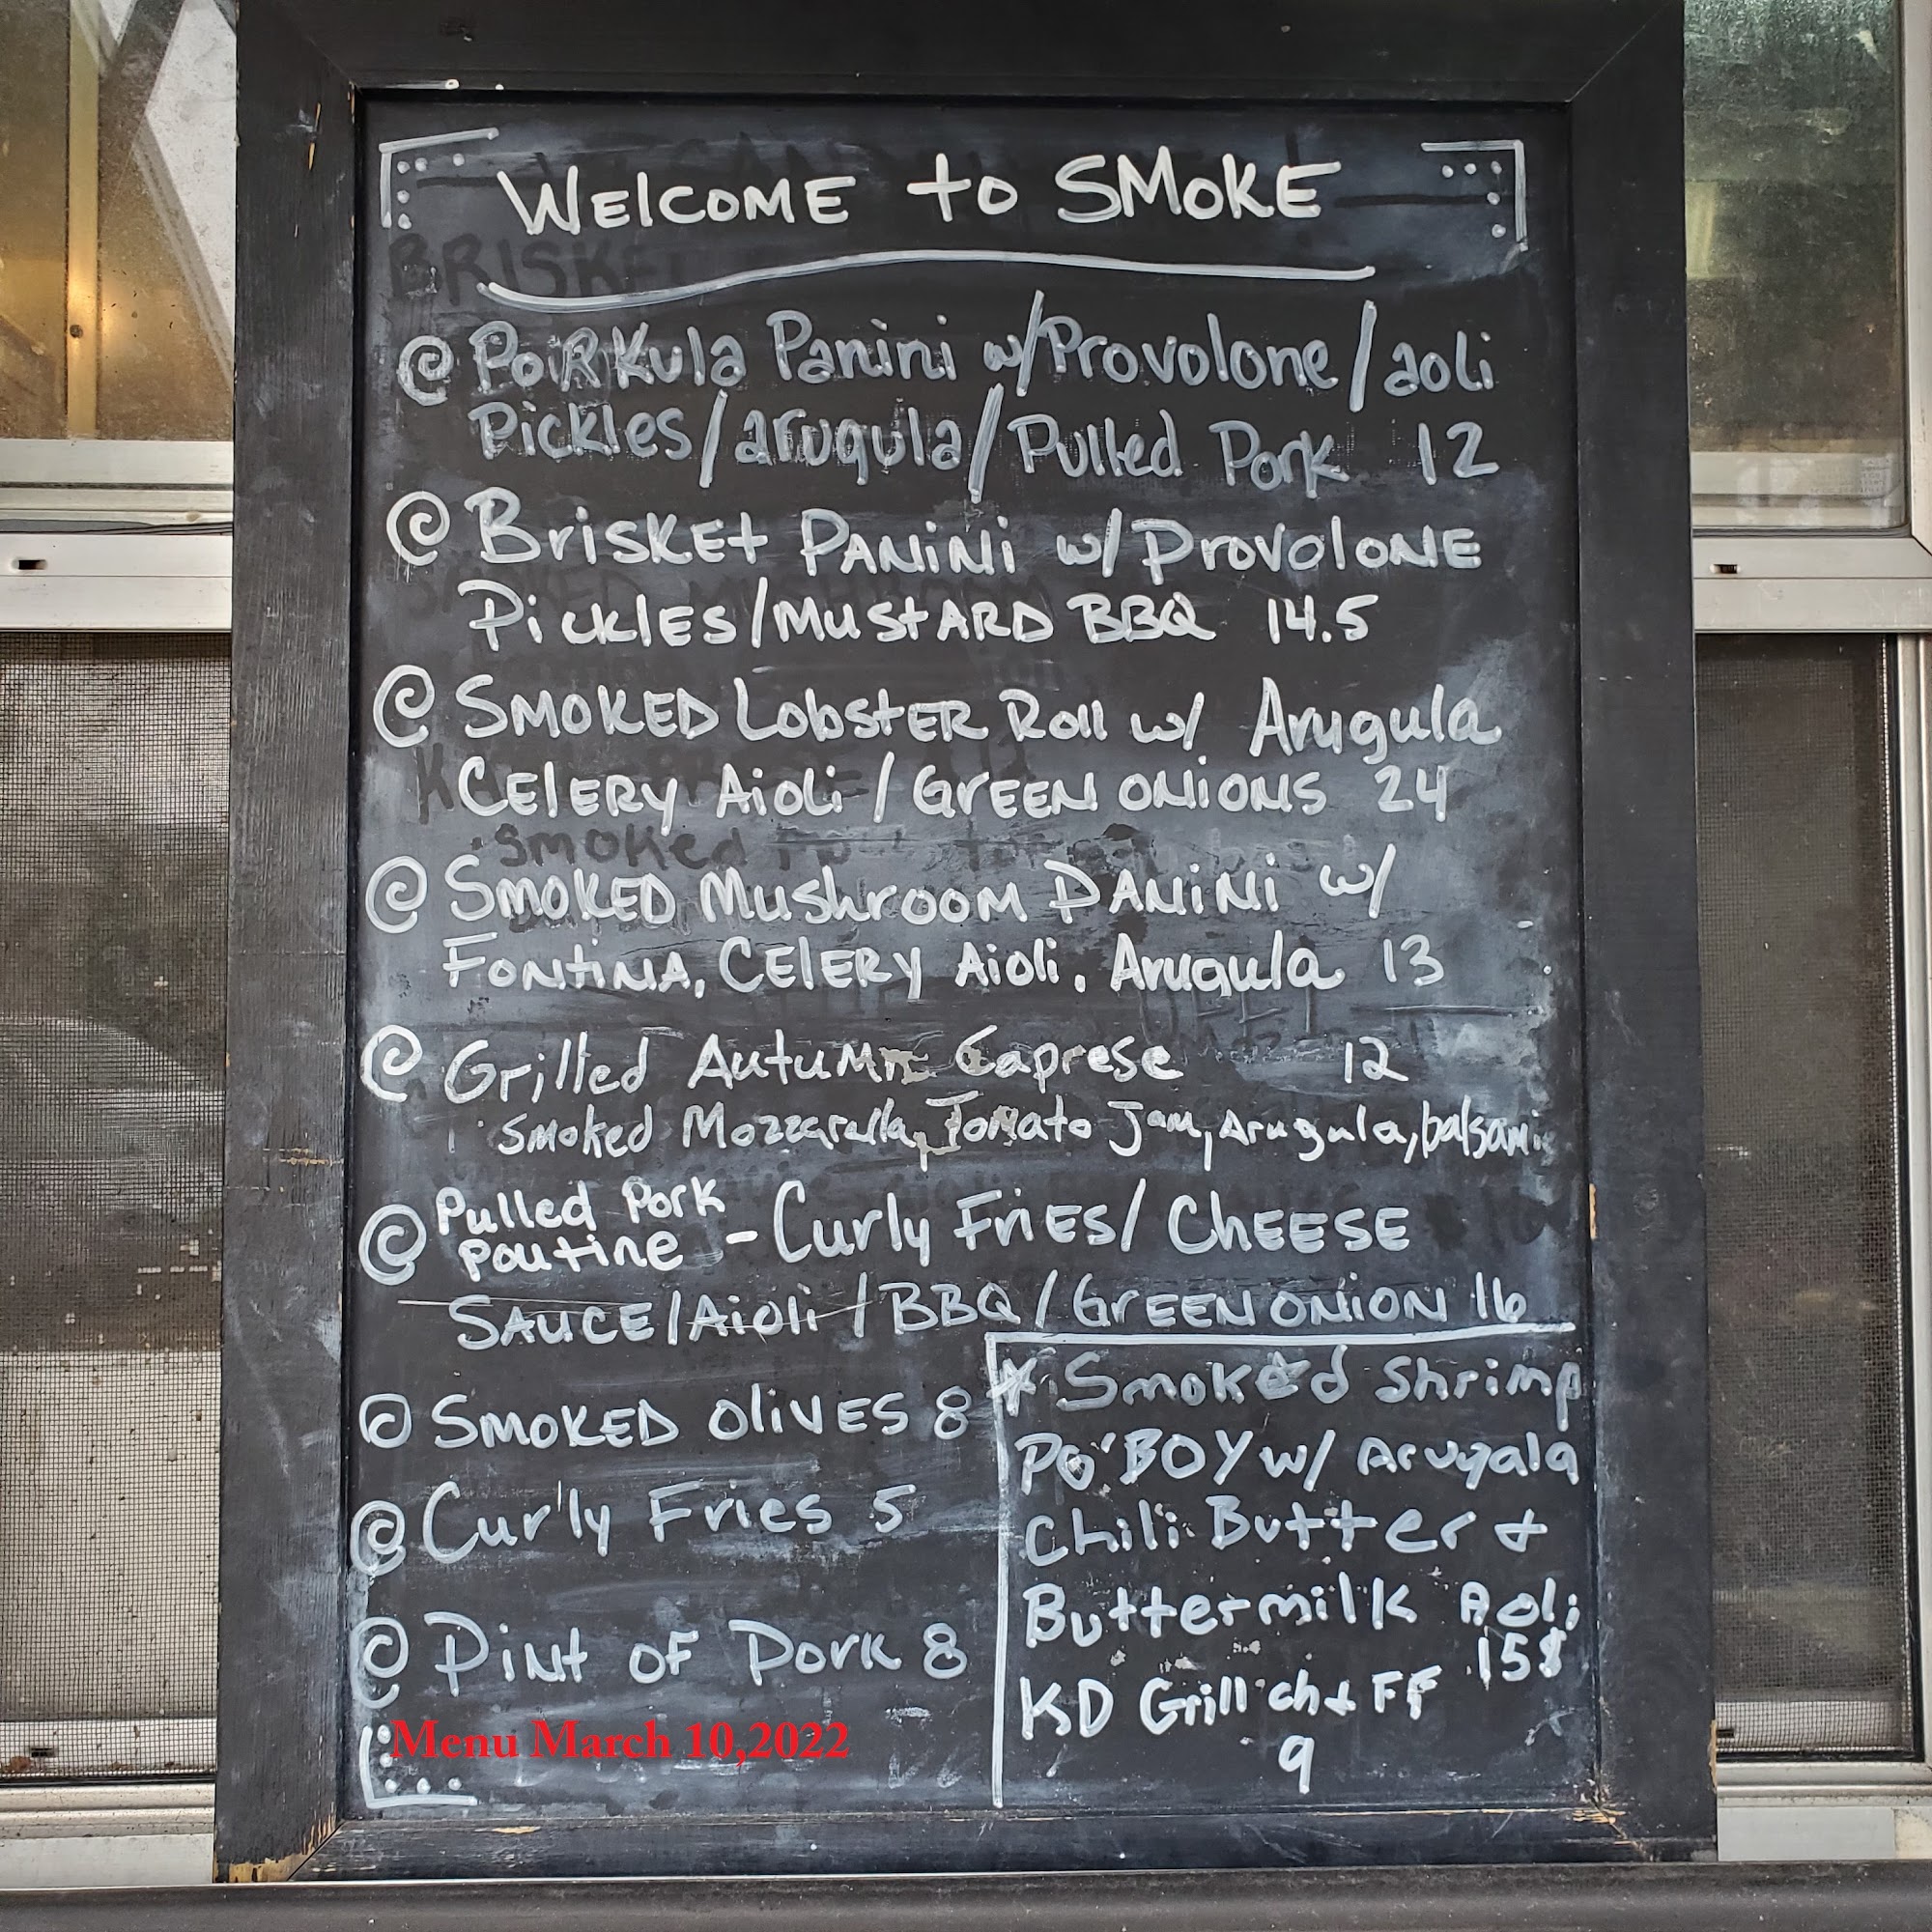 WELCOME to SMOKE
@ PoiRKula Panini w/Provolone/aoli
Pickles/arugula/Pulled Pork 12
@ BrisKEt PANiNi w/ProvoloNE
PickleS/MustARD BBQ 14.5
@ SMOKED LobstER Roll w/ Arugula
CElERy Aioli/GrEEN ONiONS 24
@ SMOKED MushrooM PANiNi w/
FoNtiNA, CElERy Aioli, Arugula 13
@ Grilled Autumn Caprese 12
Smoked Mozzarella, Tomato Jam, Arugula, balsamic
@ Pulled Pork
Poutine - Curly FriES/ ChEESE
SAUCE/Aioli/BBQ/GrEEN ONiON 16
@ SMOKED OliVES 8
@ Curly Fries 5
@ PiNt oF Pork 8
* Smoked Shrimp
PO'BOY w/ Arugala
Chili Butter &
Buttermilk Aoli
15$
KD Grill ch + FF
9
Menu March 10,2022